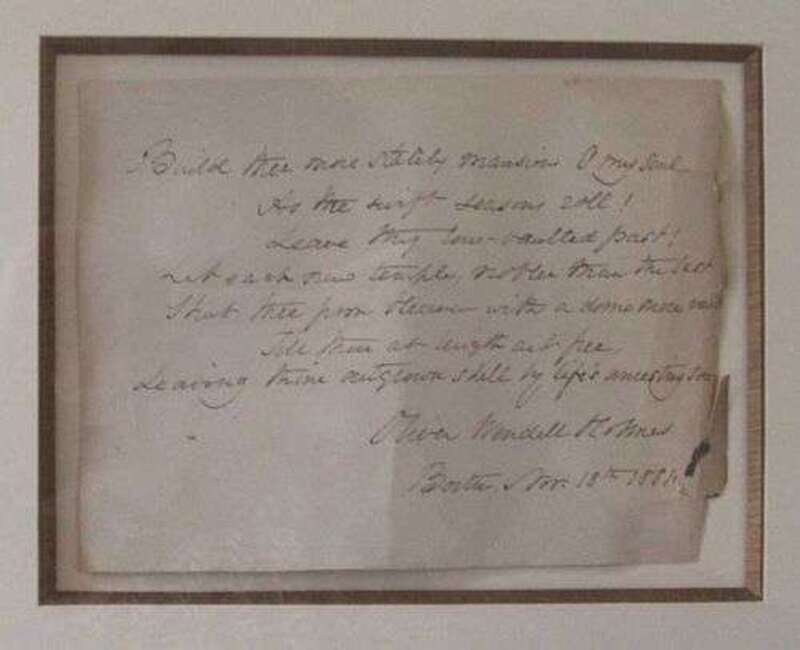 Build thee more stately mansions O my soul
As the swift seasons roll!
Leave thy low-vaulted past!
Let each new temple, nobler than the last
Shut thee from Heaven with a dome more vast
Till thou at length art free
Leaving thine outgrown shell by life's unresting sea
Oliver Wendell Holmes
Boston. Nov. 18th 188